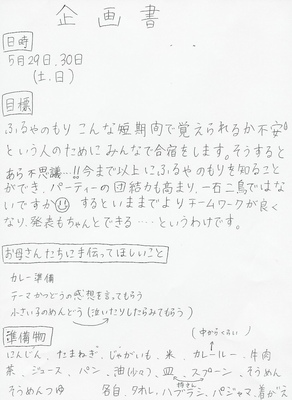 企画書
日時
5月29日、30日
(土、日)
目標
ふるやのもり こんな短期間で覚えられるか不安。
という人のためにみんなで合宿をします。そうすると
あら不思議…!!今まで以上にふるやのもりを知ること
ができ、パーティーの団結力も高まり、一石二鳥ではな
いですか するといままでよりチームワークが良く
なり、発表もちゃんとできる……というわけです。
お母さんたちに手伝ってほしいこと
カレー準備
テーマかつどうの感想を言ってもらう
小さい子のめんどう(泣いたりしたらみてもらう)
準備物
(中からくらい)
にんじん、たまねぎ、じゃがいも、米、カレールー、牛肉
茶、ジュース、パン、油(少々)、皿、スプーン、そうめん
そうめんつゆ 各自、タオル、ハブラシ、パジャマ、着がえ